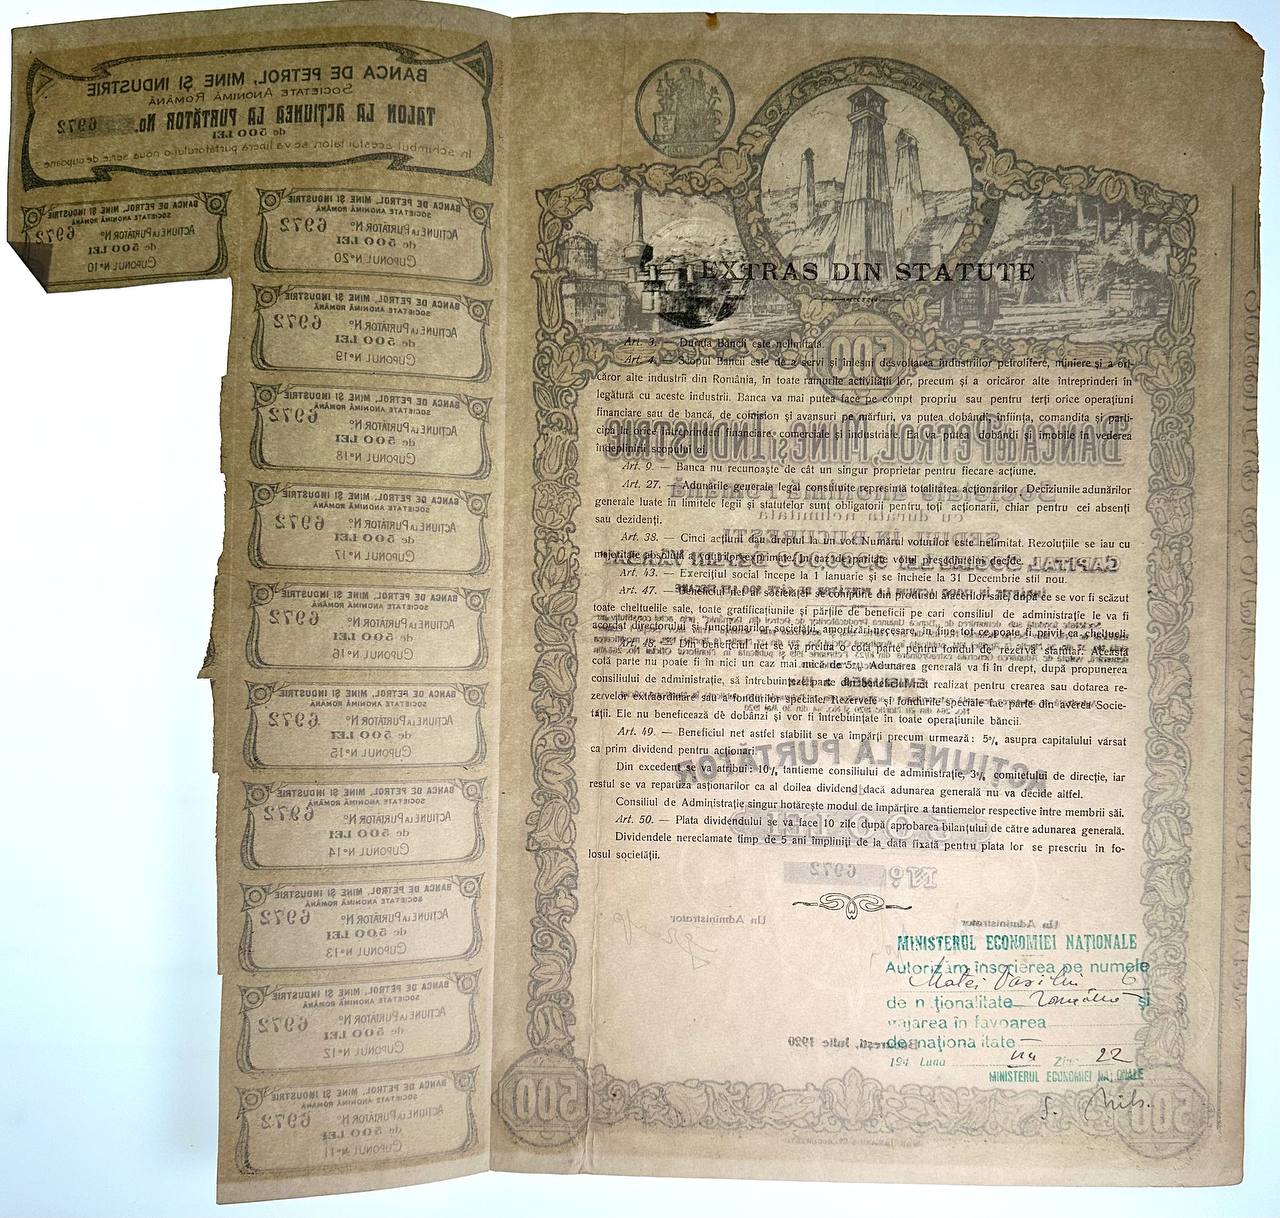 BANCA DE PETROL, MINE ȘI INDUSTRIE
SOCIETATE ANONIMĂ ROMÂNĂ
TALON LA ACȚIUNEA LA PURTĂTOR No. 6972
de 500 LEI
În schimbul acestui talon, se va libera purtătorului o nouă serie de cupoane
BANCA DE PETROL, MINE ȘI INDUSTRIE
SOCIETATE ANONIMĂ ROMÂNĂ
ACȚIUNE LA PURTĂTOR No 6972
de 500 LEI
CUPONUL No 10
BANCA DE PETROL, MINE ȘI INDUSTRIE
SOCIETATE ANONIMĂ ROMÂNĂ
ACȚIUNE LA PURTĂTOR No 6972
de 500 LEI
CUPONUL No 20
BANCA DE PETROL, MINE ȘI INDUSTRIE
SOCIETATE ANONIMĂ ROMÂNĂ
ACȚIUNE LA PURTĂTOR No 6972
de 500 LEI
CUPONUL No 19
BANCA DE PETROL, MINE ȘI INDUSTRIE
SOCIETATE ANONIMĂ ROMÂNĂ
ACȚIUNE LA PURTĂTOR No 6972
de 500 LEI
CUPONUL No 18
BANCA DE PETROL, MINE ȘI INDUSTRIE
SOCIETATE ANONIMĂ ROMÂNĂ
ACȚIUNE LA PURTĂTOR No 6972
de 500 LEI
CUPONUL No 17
BANCA DE PETROL, MINE ȘI INDUSTRIE
SOCIETATE ANONIMĂ ROMÂNĂ
ACȚIUNE LA PURTĂTOR No 6972
de 500 LEI
CUPONUL No 16
BANCA DE PETROL, MINE ȘI INDUSTRIE
SOCIETATE ANONIMĂ ROMÂNĂ
ACȚIUNE LA PURTĂTOR No 6972
de 500 LEI
CUPONUL No 15
BANCA DE PETROL, MINE ȘI INDUSTRIE
SOCIETATE ANONIMĂ ROMÂNĂ
ACȚIUNE LA PURTĂTOR No 6972
de 500 LEI
CUPONUL No 14
BANCA DE PETROL, MINE ȘI INDUSTRIE
SOCIETATE ANONIMĂ ROMÂNĂ
ACȚIUNE LA PURTĂTOR No 6972
de 500 LEI
CUPONUL No 13
BANCA DE PETROL, MINE ȘI INDUSTRIE
SOCIETATE ANONIMĂ ROMÂNĂ
ACȚIUNE LA PURTĂTOR No 6972
de 500 LEI
CUPONUL No 12
BANCA DE PETROL, MINE ȘI INDUSTRIE
SOCIETATE ANONIMĂ ROMÂNĂ
ACȚIUNE LA PURTĂTOR No 6972
de 500 LEI
CUPONUL No 11
EXTRAS DIN STATUTE
500
Art. 3. — Durata Băncii este nelimitată.
Art. 4. — Scopul Băncii este de a servi și înlesni desvoltarea industriilor petrolifere, miniere și a ori-
căror alte industrii din România, în toate ramurile activității lor, precum și a oricăror alte întreprinderi în
legătură cu aceste industrii. Banca va mai putea face pe compt propriu sau pentru terți orice operațiuni
financiare sau de bancă, de comision și avansuri pe mărfuri, va putea dobândi, înființa, comandita și parti-
cipa la orice întreprinderi financiare, comerciale și industriale. Ea va putea dobândi și imobile în vederea
îndeplinirii scopului ei.
BANCA DE PETROL, MINE ȘI INDUSTRIE
Art. 9. — Banca nu recunoaște de cât un singur proprietar pentru fiecare acțiune.
Art. 27. — Adunările generale legal constituite represintă totalitatea acționarilor. Deciziunile adunărilor
generale luate în limitele legii și statutelor sunt obligatorii pentru toți acționarii, chiar pentru cei absenți
sau dezidenți.
Societate anonimă română
cu durata nelimitată
SEDIUL IN BUCUREȘTI
Art. 38. — Cinci acțiuni dau dreptul la un vot. Numărul voturilor este nelimitat. Rezoluțiile se iau cu
majoritate absolută a voturilor exprimate. În caz de paritate votul președintelui decide.
CAPITAL SOCIAL LEI
Art. 43. — Exercițiul social începe la 1 Ianuarie și se încheie la 31 Decembrie stil nou.
Art. 47. — Beneficiul net al societăței se compune din produsul afacerilor sale, după ce se vor fi scăzut
toate cheltuelile sale, toate gratificațiunile și părțile de beneficii pe cari consiliul de administrație le va fi
acordat directorului și funcționarilor societății, amortizări necesare, în fine tot ce poate fi privit ca cheltueli.
Art. 48. — Din beneficiul net se va prelua o cotă parte pentru fondul de rezervă statutar. Această
cotă parte nu poate fi în nici un caz mai mică de 5%. Adunarea generală va fi în drept, după propunerea
consiliului de administrație, să întrebuințeze parte din beneficiul net realizat pentru crearea sau dotarea re-
zervelor extraordinare sau a fondurilor speciale. Rezervele și fondurile speciale fac parte din averea Socie-
tății. Ele nu beneficează de dobânzi și vor fi întrebuințate în toate operațiunile băncii.
Art. 49. — Beneficiul net astfel stabilit se va împărți precum urmează: 5% asupra capitalului vărsat
ca prim dividend pentru acționari.
ACȚIUNE LA PURTĂTOR
Din excedent se va atribui: 10% tantieme consiliului de administrație, 3% comitetului de direcție, iar
restul se va repartiza asționarilor ca al doilea dividend dacă adunarea generală nu va decide altfel.
Consiliul de Administrație singur hotărește modul de împărțire a tantiemelor respective între membrii săi.
Art. 50. — Plata dividendului se va face 10 zile după aprobarea bilanțului de către adunarea generală.
Dividendele nereclamate timp de 5 ani împliniți de la data fixată pentru plata lor se prescriu în fo-
losul societății.
500 LEI
No 6972
Un Administrator
Un Administrator
București, Iulie 1920
MINISTERUL ECONOMIEI NAȚIONALE
Autorizăm înscrierea pe numele
Matei Vasiliu
de naționalitate română și
vajarea în favoarea
de naționalitate
194 Luna Ziua 22
MINISTERUL ECONOMIEI NAȚIONALE
500
500